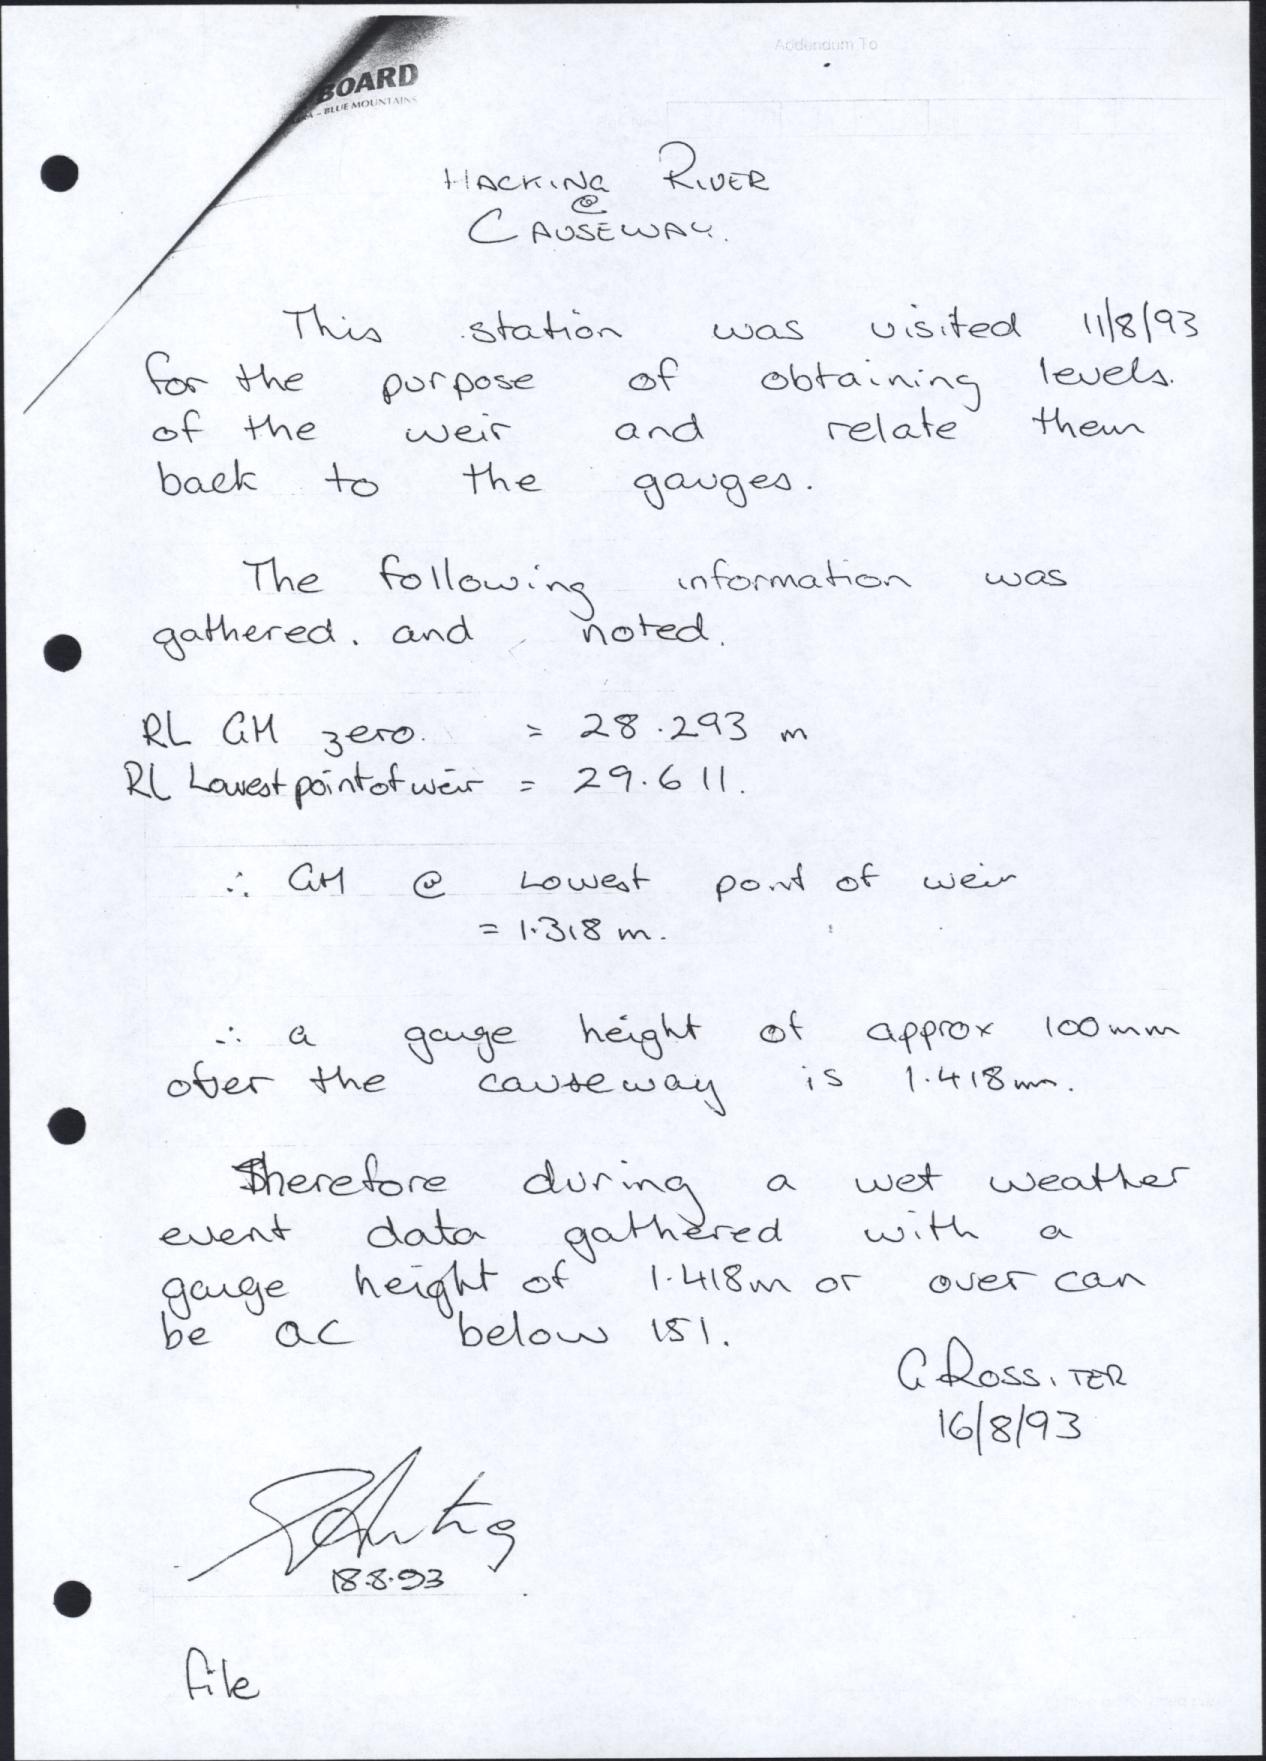 Addendum To
BOARD
– BLUE MOUNTAINS
HACKING RIVER
@
CAUSEWAY.
This station was visited 11/8/93
for the purpose of obtaining levels.
of the weir and relate them
back to the gauges.
The following information was
gathered. and noted.
RL GH zero. = 28.293 m
RL Lowest point of weir = 29.611.
∴ GH @ Lowest point of weir
= 1.318 m.
∴ a gauge height of approx 100mm
over the causeway is 1.418m.
Therefore during a wet weather
event data gathered with a
gauge height of 1.418m or over can
be QC below 151.
G ROSSITER
16/8/93
18.8.93
file